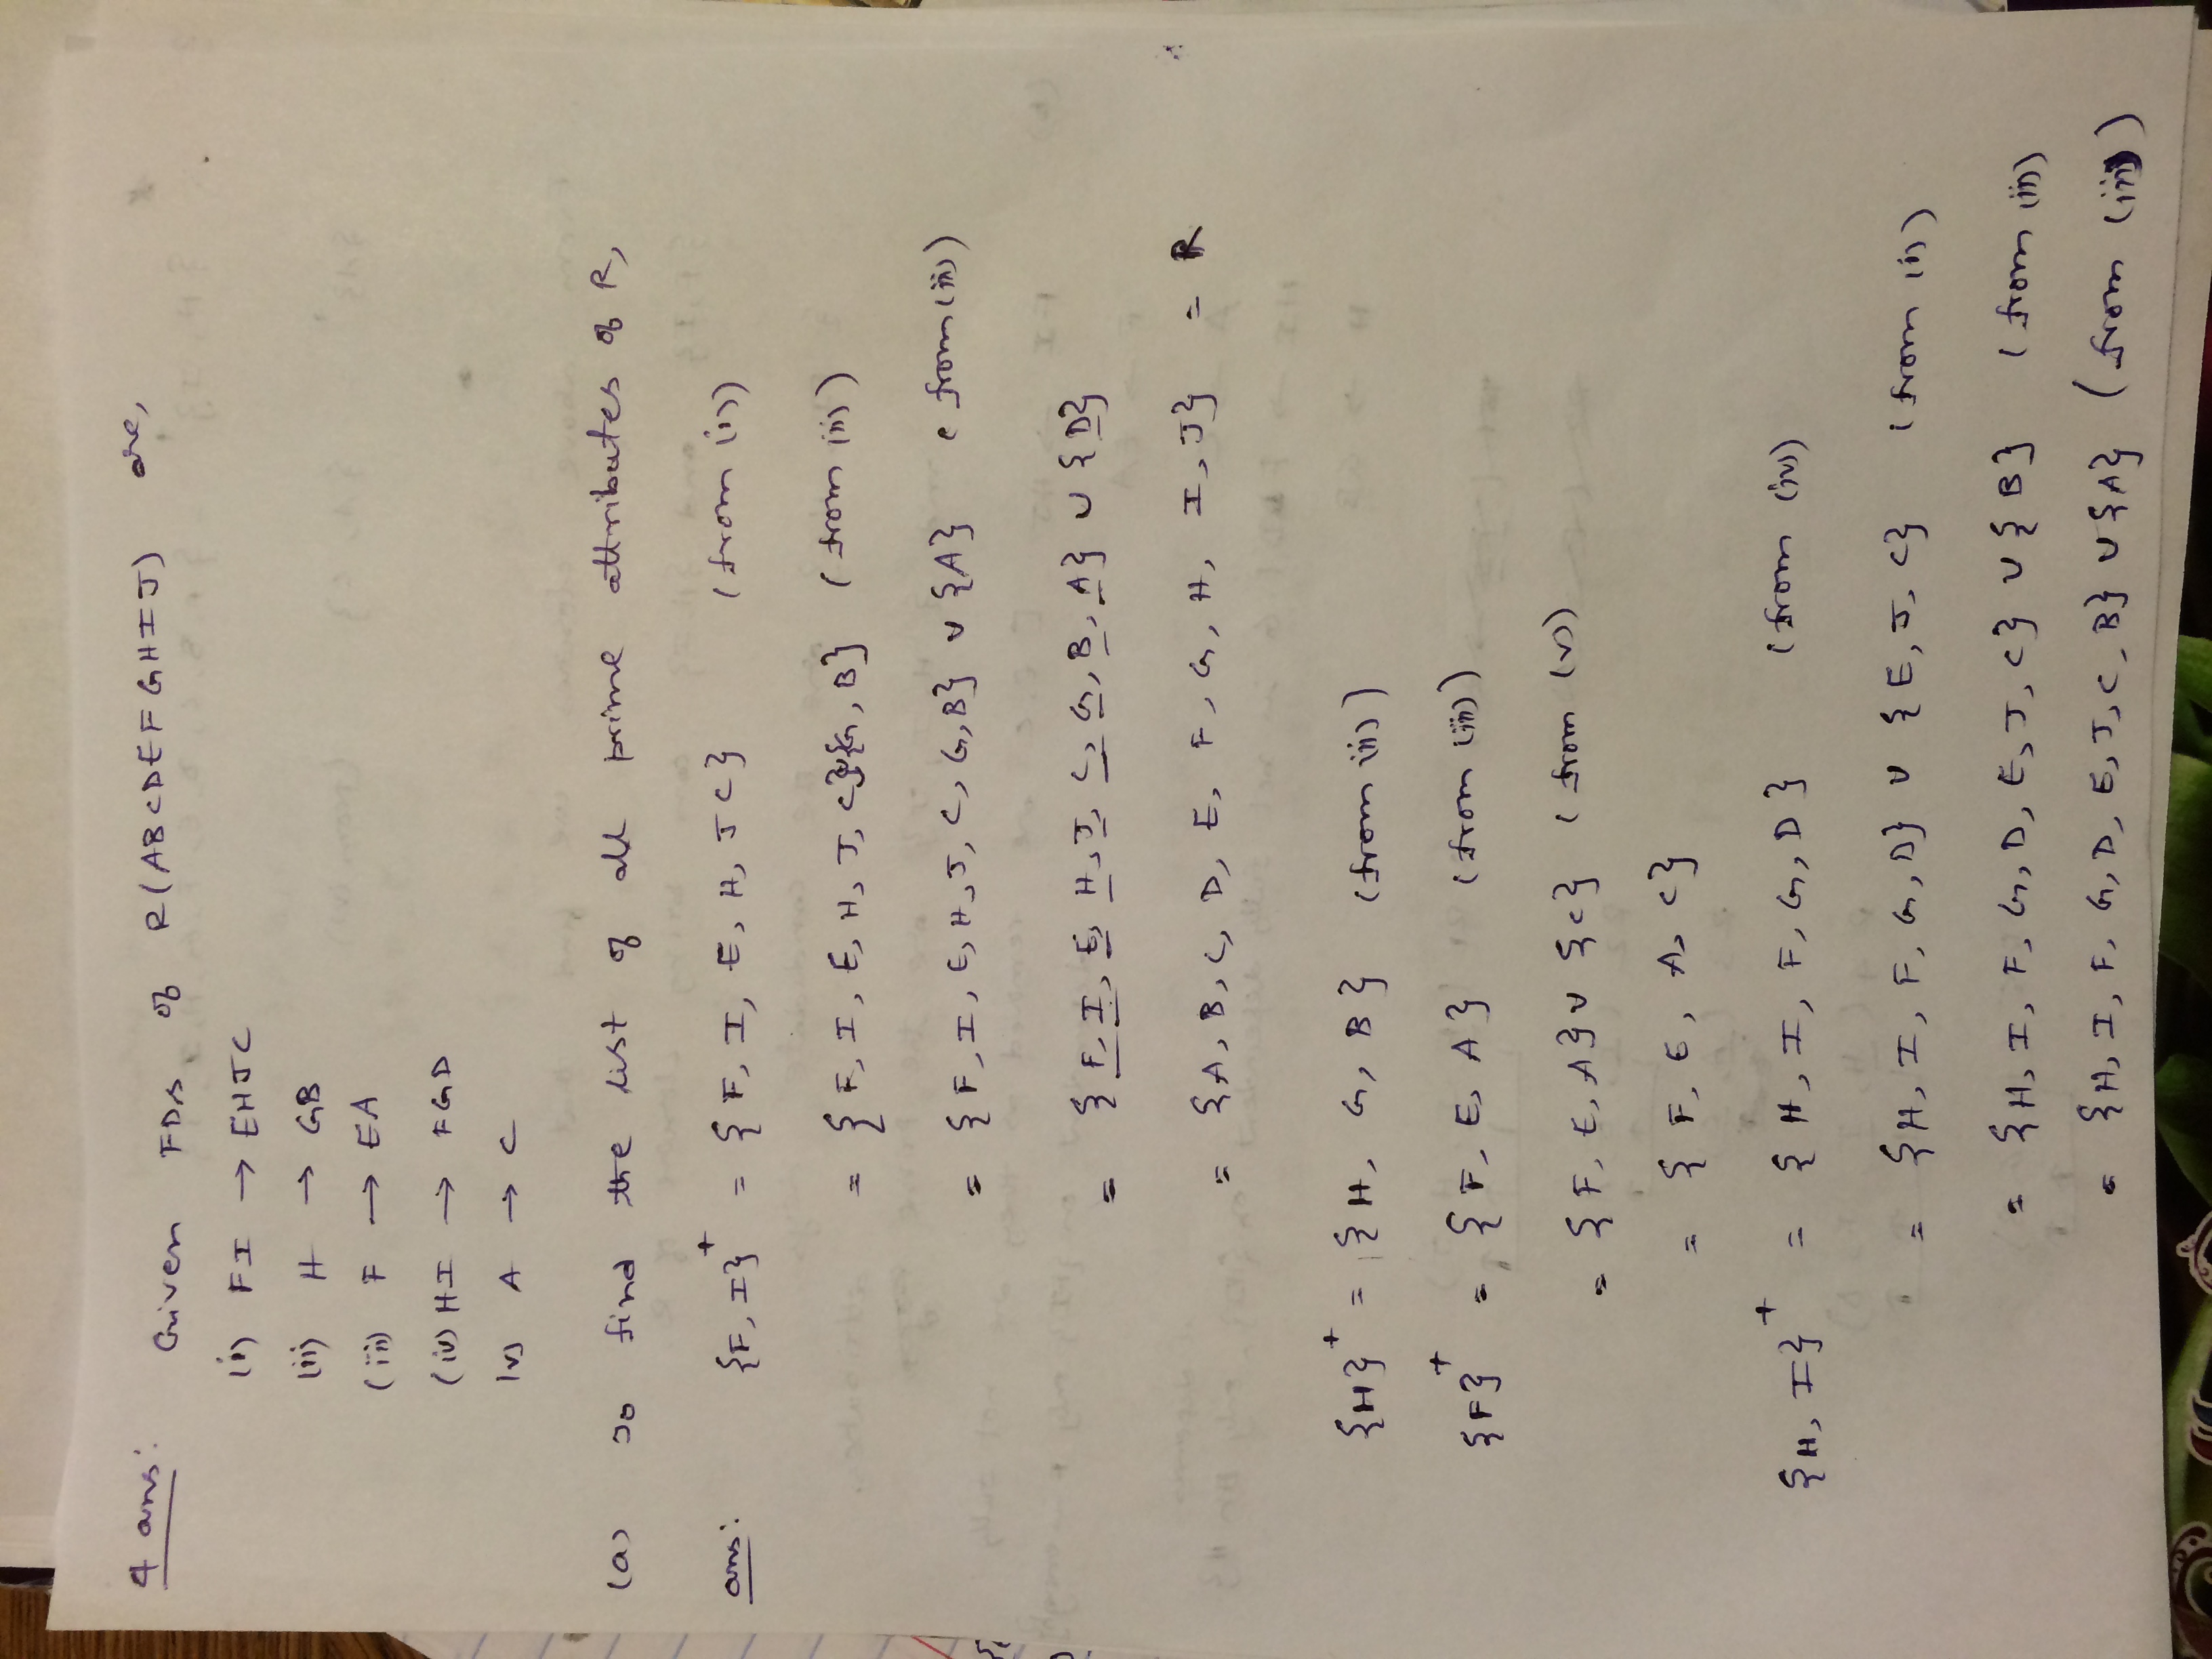 4 ans:
Given FDs of R(ABCDEFGHIJ) are,
(i) FI → EHJC
(ii) H → GB
(iii) F → EA
(iv) HI → FGD
(v) A → C
(a) To find the list of all prime attributes of R,
ans: {F, I}⁺ = {F, I, E, H, J C} (from (i))
= {F, I, E, H, J, C}∪{G, B} (from (ii))
= {F, I, E, H, J, C, G, B} ∪ {A} (from (iii))
= {F, I, E, H, J, C, G, B, A} ∪ {D}
= {A, B, C, D, E, F, G, H, I, J} = R
{H}⁺ = {H, G, B} (from (ii))
{F}⁺ = {F, E, A} (from (iii))
= {F, E, A} ∪ {C} (from (v))
= {F, E, A, C}
{H, I}⁺ = {H, I, F, G, D} (from (iv))
= {H, I, F, G, D} ∪ {E, J, C} (from (i))
= {H, I, F, G, D, E, J, C} ∪ {B} (from (ii))
= {H, I, F, G, D, E, J, C, B} ∪ {A} (from (iii))